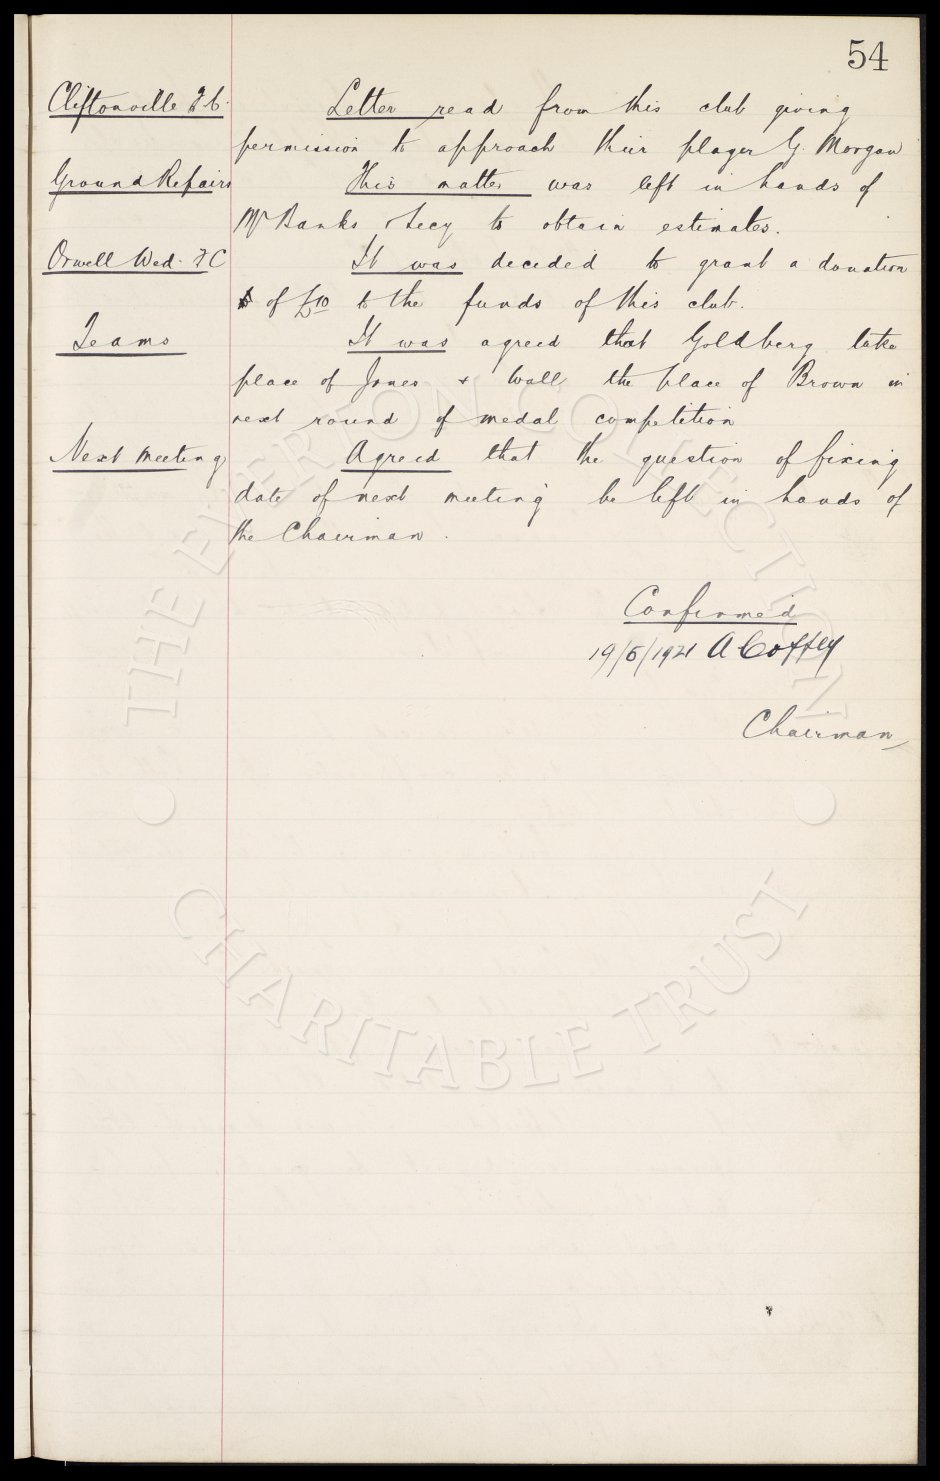 54
Cliftonville F.C. Letter read from this club giving
permission to approach their player G. Morgan
Ground Repairs This matter was left in hands of
Mr Banks & Secy to obtain estimates.
Orwell Wed. F C It was decided to grant a donation
of £10 to the funds of this club.
Teams It was agreed that Goldberg take
place of Jones & Wall the place of Brown in
next round of medal competition
Next meeting Agreed that the question of fixing
date of next meeting be left in hands of
the Chairman.
Confirmed
19/5/1921 A Coffey
Chairman
THE EVERTON COLLECTION
CHARITABLE TRUST